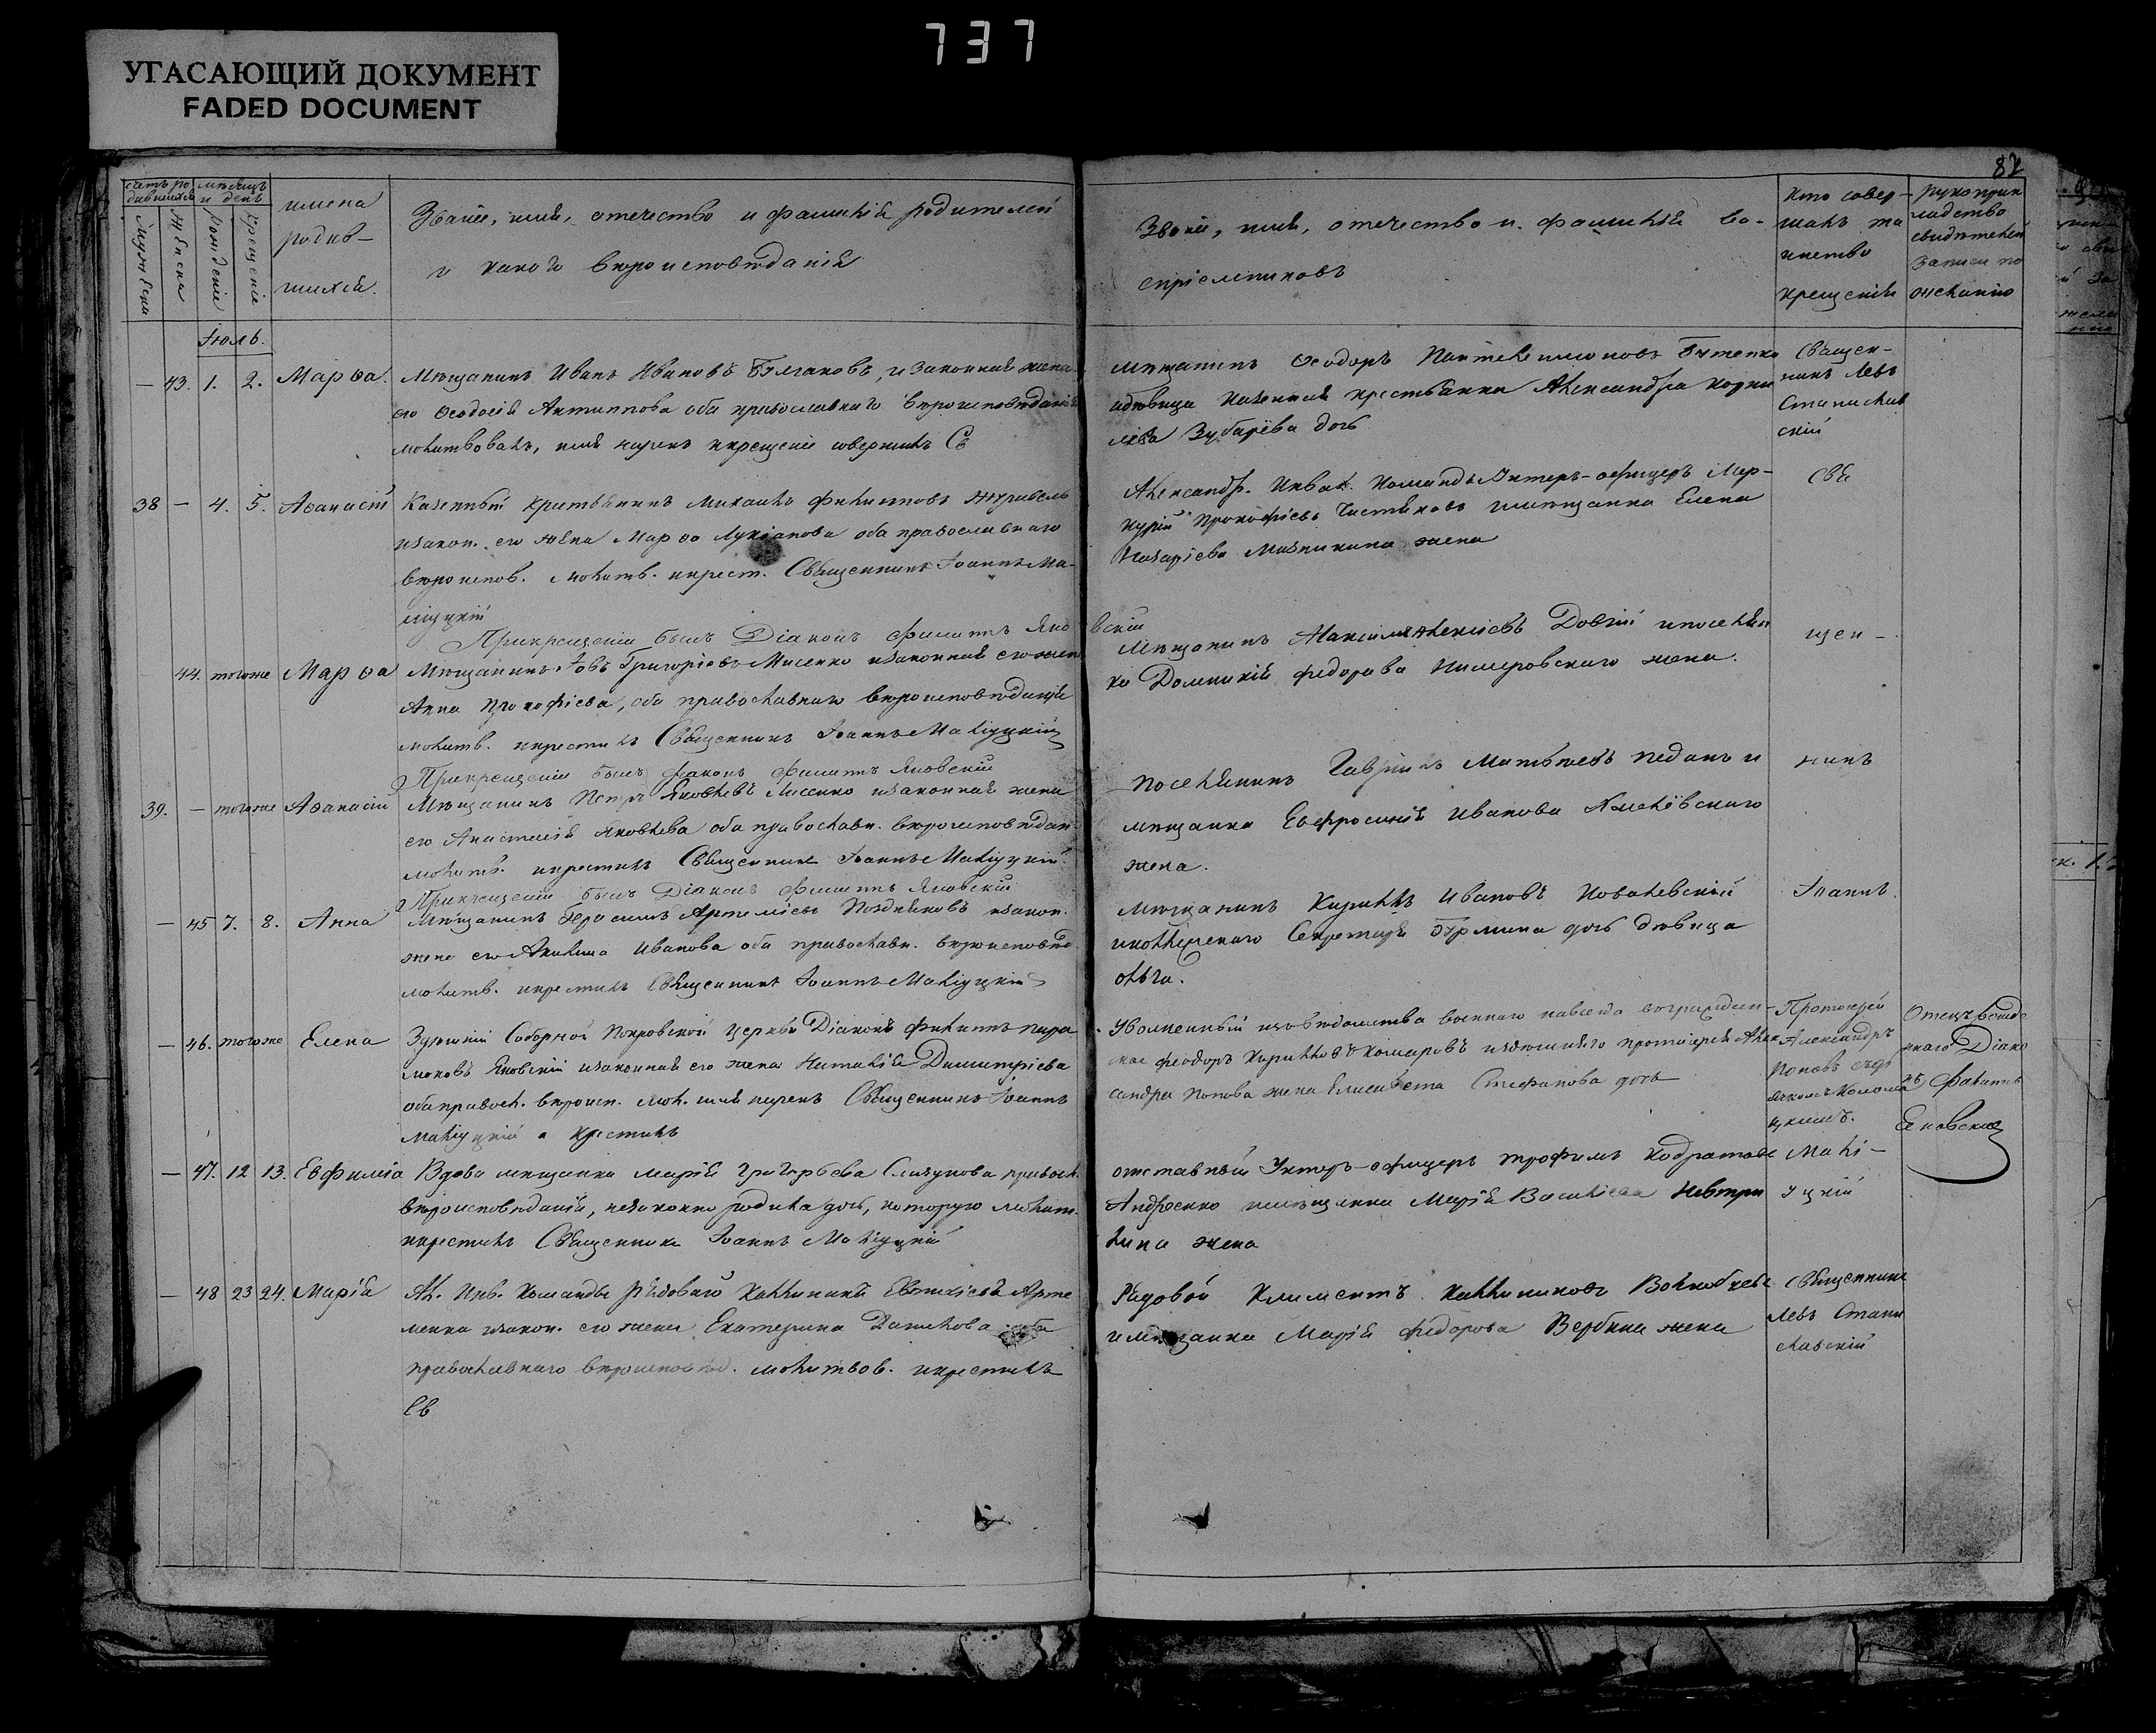 737
УГАСАЮЩИЙ ДОКУМЕНТ
FADED DOCUMENT
82
счетъ ро
дившихся
мѣсяцъ
и день
Мужеска
Женска
Рожденіе
Крещеніе
имена
родив-
шихся.
Званіе, имя, отечество и фамилія родителей
и какого вѣроисповѣданія
Званіе, имя, отечество и фамилія во-
спріемниковъ
Кто совер-
шалъ та
инство
крещенія
рукоприк
ладство
свидѣтелей
записи по
желанію
Іюль.
— 43. 1. 2. Марѳа.
Мѣщанинъ Иванъ Ивановъ Булгаковъ, и законная жена
его Ѳеодосія Антиппова оба православнаго вѣроисповѣданія
молитвовалъ, имя нарекъ и крещеніе совершилъ Св
мѣщанинъ Ѳеодоръ Пантелеимоновъ Бутенко
и дѣвица казенная крестьянка Александра Корни
лѣва Зубарева дочь
Священ-
никъ Левъ
Станислав
скій
38 — 4. 5. Аѳанасій
Казенный крестьянинъ Михаилъ Филипповъ Журавель
и закон. его жена Марѳа Лукіанова оба православнаго
вѣроиспов. молитв. и крест. Священникъ Іоаннъ Ма-
ліуцкій
Александр. Инвал. Команды Унтеръ-офицеръ Мер-
курій Прокофіевъ Чистяковъ и мѣщанка Елена
Назаріева жена
Свя
При крещеніи былъ Діаконъ Филиппъ Яно
вскій
44. тогоже Марѳа
Мѣщанинъ Іовъ Григоріевъ Мисенко и законная его жена
Анна Прокофіева, оба православнаго вѣроисповѣданія
молитв. и крестилъ Священникъ Іоаннъ Маліуцкій
Мѣщанинъ Максимъ Алексіевъ Довгій и поселян
ка Домникія Федорова Нимеровскаго жена.
щен-
При крещеніи былъ Діаконъ Филиппъ Яновскій
39. — тогоже Аѳанасій
Мѣщанинъ Петръ Яковлевъ Лисенко и законная жена
его Анастасія Яковлева оба православн. вѣроисповѣдан.
молитв. и крестилъ Священникъ Іоаннъ Маліуцкій.
Поселянинъ Гавріилъ Матвѣевъ Педанъ и
мѣщанка Евфросинія Иванова
жена.
никъ
При крещеніи былъ Діаконъ Филиппъ Яновскій
— 45 7. 8. Анна
Мѣщанинъ Герасимъ Артеміевъ Поздняковъ и закон.
жена его Акилина Иванова оба православн. вѣроисповѣд
молитв. и крестилъ Священникъ Іоаннъ Маліуцкій
Мѣщанинъ Кириллъ Ивановъ Ковалевскій
и коллежскаго Секретаря дочь дѣвица
Ольга.
Іоаннъ
— 46. тогоже Елена
Здѣшній Соборной Покровской Церкви Діаконъ Филиппъ
Яновскій и законная его жена Наталія Димитріева
оба правосл. вѣроисп. мол. имя нарекъ Священникъ Іоаннъ
Маліуцкій а крестилъ
Уволенный изъ вѣдомства военнаго
Феодоръ Кирилловъ Комаровъ и здѣшняго протоіерея Алек
сандра Попова жена Елисавета Стефанова дочь
Протоіерей
Александръ
Поповъ съ
Отецъ
Діако
нъ Филиппъ
Яновскій
— 47. 12 13. Евфимія
Вдова мѣщанка Марія Григорьева правосл.
вѣроисповѣданія, незаконно родила дочь, которую молитв.
и крестилъ Священникъ Іоаннъ Маліуцкій
отставный Унтеръ-офицеръ Трофимъ Кодратовъ
Андреенко и мѣщанка Марія Василіева
жена
Малі-
уцкій
— 48 23 24. Марія
Ал. Инв. Команды Рядоваго Каллиника Евтихіевъ Арте
менка и закон. его жена Екатерина Данилова оба
православнаго вѣроисповѣд. молитвов. и крестилъ
Св
Рядовой Климентъ Каллиниковъ
и мѣщанка Марія Федорова Вербина жена
Священникъ
Левъ Стани
славскій